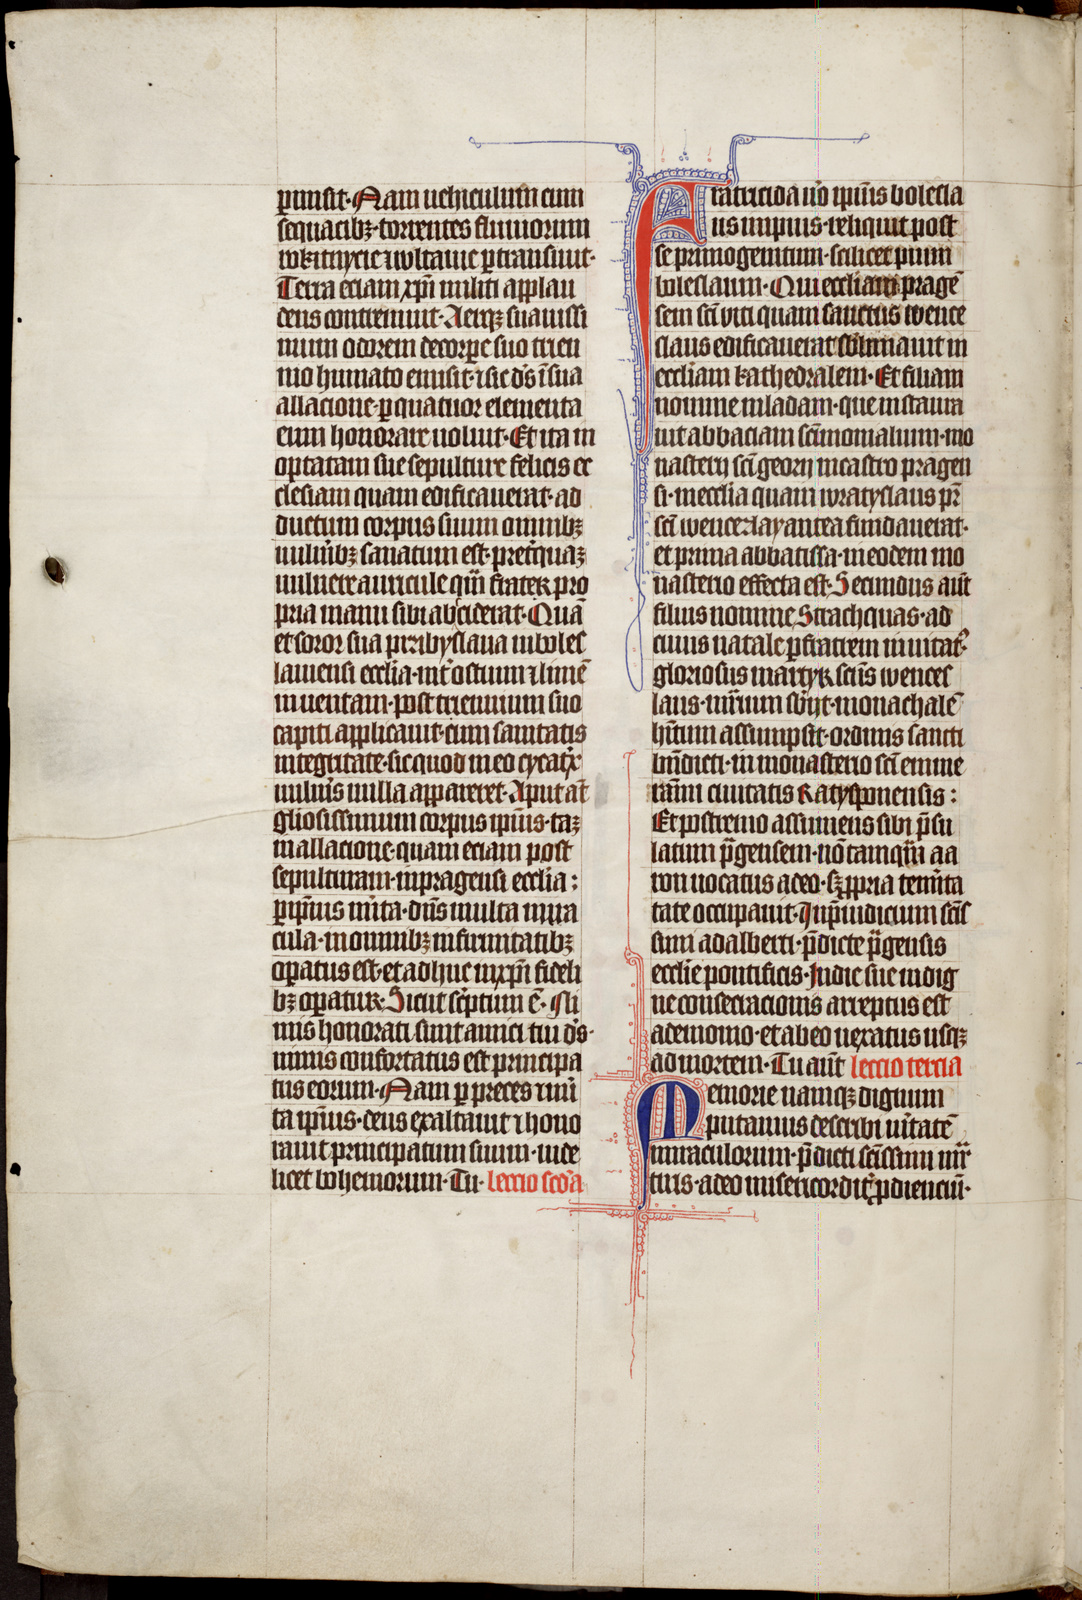 punsit· Nam uehiculum cum
sequacibꝫ· torrentes fluuiorum
rokitnycie wltauie ꝑtransiuit·
Terra eciam xp̄i militi applau
dens contremuit· Aerqꝫ suauissi
mum odorem decorꝑe suo trien
nio humato emisit· ⁊ sic dn̄s ī sua
allacione· ꝑ quatuor elementa
eum honorare uoluit· Et ita in
optatam sue sepulture felicis ec
clesiam quam edificauerat· ad
ductum corpus suum omnibꝫ
uulnībꝫ sanatum est· preterquaꝫ
uulnere auricule qm̄ frater pro
pria manu sibi absciderat· Quā
et soror sua przibyslaua in boles
lauensi ecclīa· int̄ ostium ⁊ limē
inuentam· post triennium suo
capiti applicauit· cum sanitatis
integritate· sic quod in eo cycatͥx
uulnīs nulla appareret· Aput at̄
gl̄iosissimum corpus ip̄ius· taꝫ
in allacione· quam eciam post
sepulturam· in pragensi ecclīa :
ꝑ ip̄ius mīta· dn̄s multa mira
cula· in omnibꝫ infirmitatibꝫ
oꝑatus est· et adhuc in xp̄i fideli
bꝫ oꝑatur· Sicut scͥptum ē· Ni
mis honorati sunt amici tui ds̄·
nimis confortatus est principa
tus eorum· Nam ꝑ preces ⁊ mīi
ta ip̄ius· deus exaltauit ⁊ hono
rauit principatum suum· uide
licet bohemorum· Tu· leccio scd̄a
Fratricida uo ip̄ius bolesla
us impius· reliquit post
se primogenitum· scilicet pium
boleslaum· Qui eccliam pragē
sem scī viti quam sanctus wence
slaus edificauerat sb̄limauit in
eccliam kathedralem· Et filiam
nomine mladam· que instaura
uit abbaciam scīmonialium· mo
nasterij scī georij in castro pragen
si· in ecclia quam wratyslaus pr̄
scī wencezlay antea fundauerat·
et prima abbatissa· in eodem mo
nasterio effecta est· Secundus aūt
filius nomine Strachquas· ad
cuius natale ꝑ fratrem inuitatꝰ·
gloriosus martyr scūs wences
laus· nr̄ium sb̄ijt· monachalē
hītum assumpsit· ordinis sancti
bn̄dicti· in monasterio scī emme
rāmi ciuitatis Ratysponensis :
Et postremo assumens sibi p̄su
latum p̄gensem· nō tamqm̄ aa
ron uocatus a deo· sꝫ ꝓpria temīta
tate occupauit· In p̄iudicium scīs
simi adalberti· p̄dicte p̄gensis
ecclie pontificis· In die sue indig
ne consecracionis arreptus est
a demonio· et ab eo uexatus usqꝫ
ad mortem· Tu aūt leccio tercia
Memorie namqꝫ dignum
putauimus describi uītatē
miraculorum· p̄dicti scīssimi mr̄
tiris· a deo misericordit̄· ꝓdienciū·